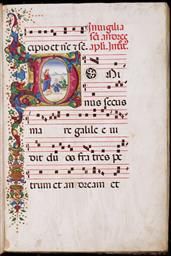 In uigilia
sci andree
capio et ñc ⁊ sc̄
apli. Introit.
Omi
nus secus
ma re galilee ui
dit duos fratres pe
trum et andream et